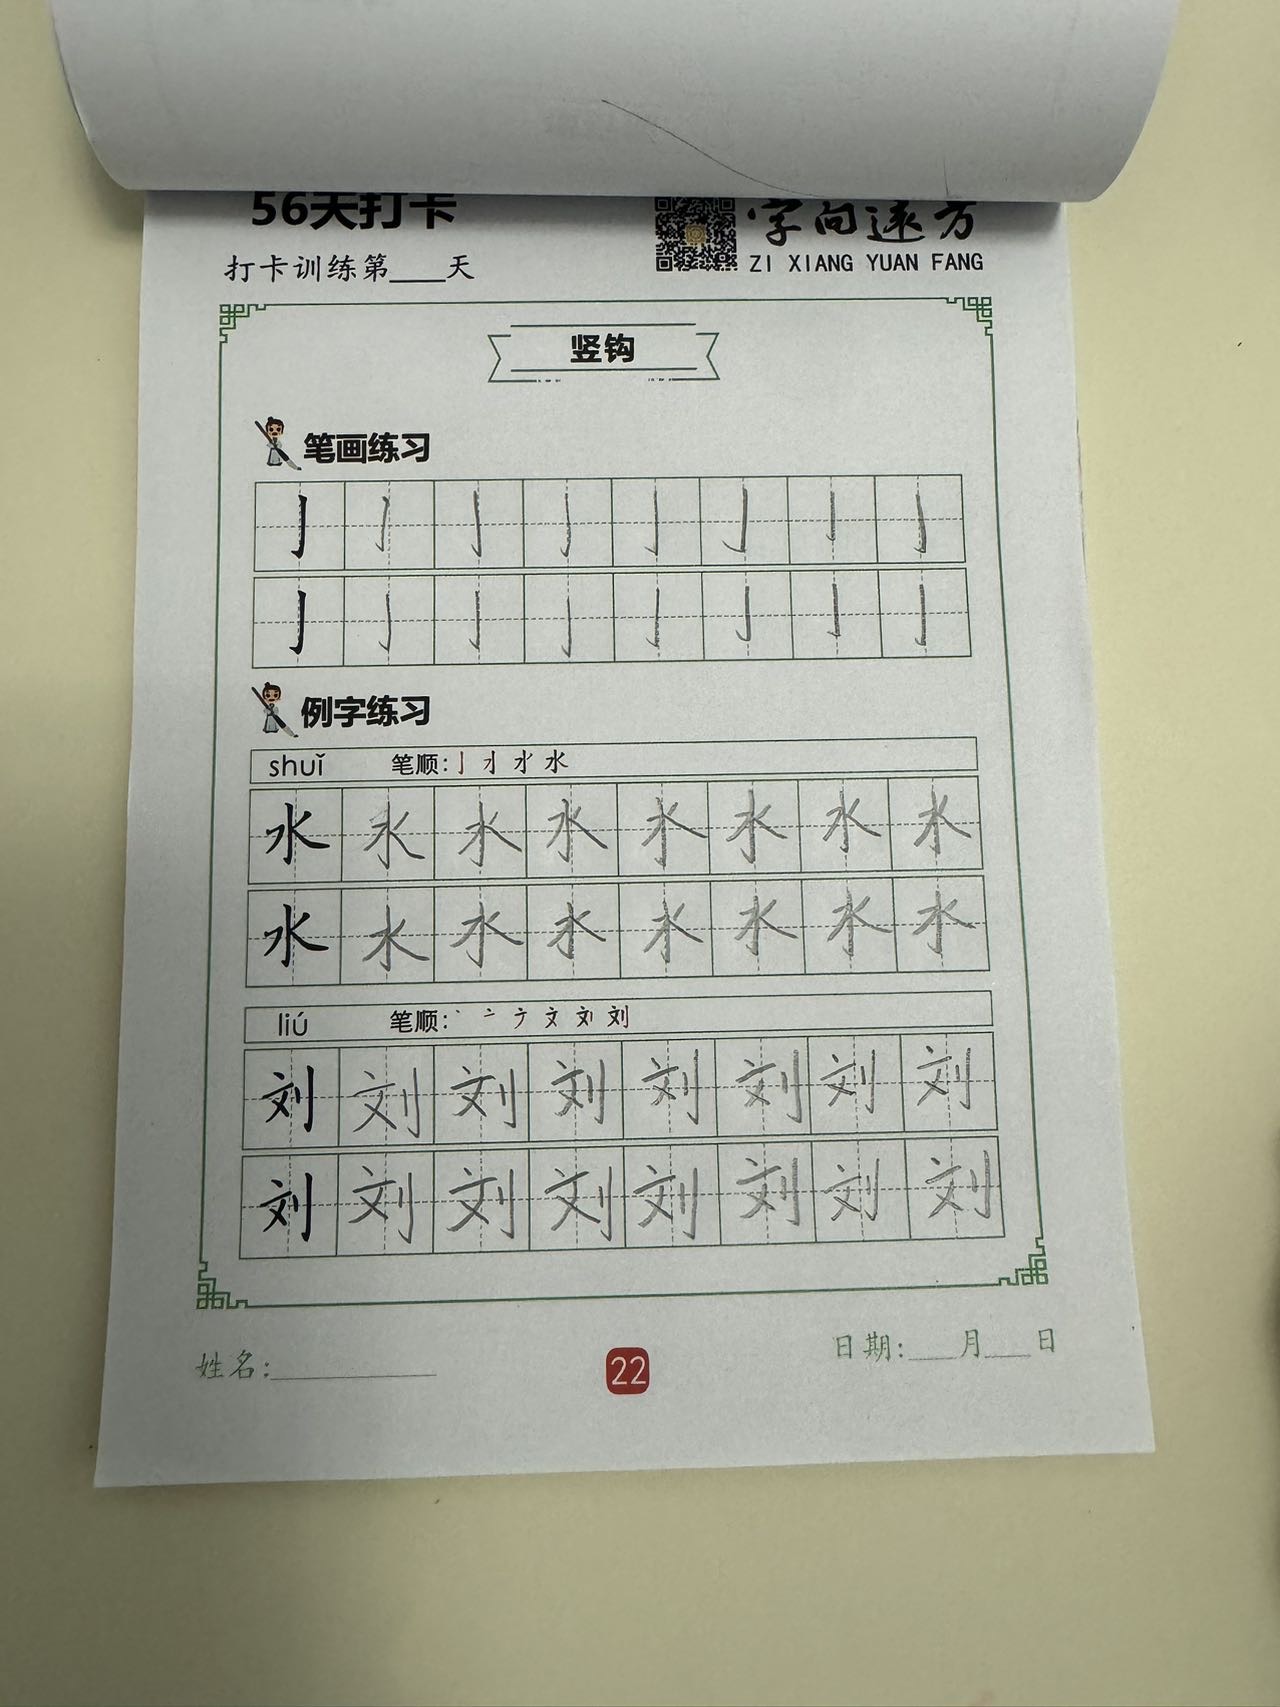 56天打卡
字向远方
打卡训练第____天
ZI XIANG YUAN FANG
竖钩
笔画练习
亅 亅 亅 亅 亅 亅 亅 亅
亅 亅 亅 亅 亅 亅 亅 亅
例字练习
shuǐ 笔顺:
水 水 水 水 水 水 水 水
水 水 水 水 水 水 水 水
liú 笔顺:
刘 刘 刘 刘 刘 刘 刘 刘
刘 刘 刘 刘 刘 刘 刘 刘
姓名:__________
22
日期:____月____日